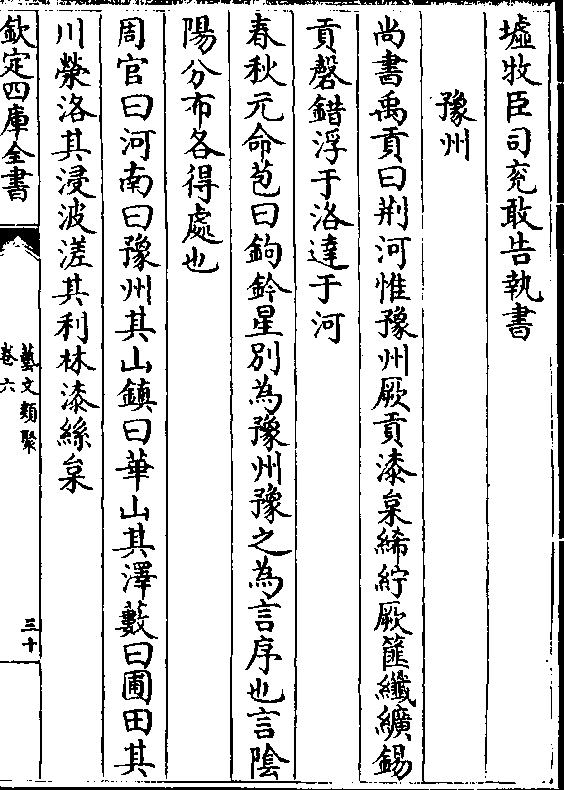 墟牧臣司兖敢告執書
豫州
尚書禹貢曰荆河惟豫州厥貢漆枲絺紵厥篚纖纊錫
貢磬錯浮于洛達于河
春秋元命苞曰鉤鈐星別為豫州豫之為言序也言陰
陽分布各得處也
周官曰河南曰豫州其山鎮曰華山其澤藪曰圃田其
川滎洛其浸波溠其利林漆絲枲
欽定四庫全書
藝文類聚
卷六
三十